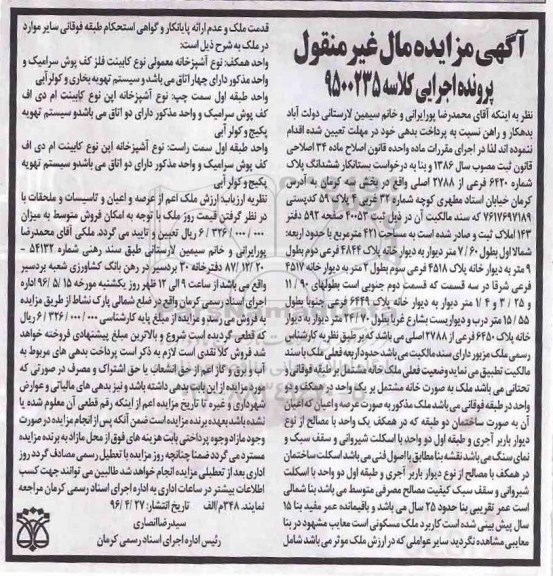 آگهی مزایده مال غیر منقول
پرونده اجرایی کلاسه ۹۵۰۰۲۳۵
نظر به اینکه آقای محمدرضا پورایرانی و خانم سیمین لارستانی دولت آباد
بدهکار و راهن نسبت به پرداخت بدهی خود در مهلت تعیین شده اقدام
ننموده اند لذا در اجرای مقررات ماده واحده قانون اصلاح ماده ۳۴ اصلاحی
قانون ثبت مصوب سال ۱۳۸۶ و بنا به درخواست بستانکار ششدانگ پلاک
شماره ۶۴۲۰ فرعی از ۲۷۸۸ اصلی واقع در بخش سه کرمان به آدرس
کرمان خیابان استاد مطهری کوچه شماره ۳۲ غربی ۴ پلاک ۵۹ کدپستی
۷۶۱۷۶۹۷۱۸۹ که سند مالکیت آن در ذیل ثبت ۴۰۰۵۳ صفحه ۵۹۲ دفتر
۱۴۳ املاک ثبت و صادر شده است به مساحت ۴۲۱ مترمربع با حدود اربعه:
شمالا اول بطول ۷/۶۰ متر دیوار به دیوار خانه پلاک ۴۸۴۴ فرعی دوم بطول
۹ متر به دیوار خانه پلاک ۴۵۱۸ فرعی سوم بطول ۲ متر به دیوار خانه ۴۵۱۷
فرعی شرقا در سه قسمت که قسمت دوم جنوبی است بطولهای ۱۱/۹۰
و ۳/۲۵ و ۱/۴ متر دیوار به دیوار خانه پلاک ۶۴۴۹ فرعی جنوبا بطول
۱۵/۵۵ متر درب و دیواریست بشارع غربا بطول ۲۴/۷۰ متر دیوار به دیوار
خانه پلاک ۶۴۵۰ فرعی از ۲۷۸۸ اصلی می باشد که بر طبق نظر یه کارشناس
رسمی ملک مزبور دارای سند مالکیت می باشد حدود اربعه فعلی ملک با سند
مالکیت تطبیق می نماید وضعیت فعلی ملک خانه مشتمل بر طبقه فوقانی و
تحتانی می باشد ملک به صورت خانه مشتمل بر یک واحد در همکف و دو
واحد در طبقه فوقانی می باشد ملک مذکور به صورت عرصه و اعیان که اعیان
آن به صورت ساختمان دو طبقه که در همکف یک واحد با مصالح از نوع
دیوار باربر آجری و طبقه اول دو واحد با اسکلت شیروانی و سقف سبک و
نمای سنگ می باشد نقشه بنا مطابق با اصول فنی می باشد اسکلت ساختمان
در همکف با مصالح از نوع دیوار باربر آجری و طبقه اول دو واحد با اسکلت
شیروانی و سقف سبک کیفیت مصالح مصرفی متوسط می باشد بنا شمالی
است عمر تقریبی بنا حدود ۲۵ سال می باشد و باقیمانده عمر مفید بنا ۱۵
سال پیش بینی شده است کاربرد ملک مسکونی است معایب مشهود در بنا
معایبی مشاهده نگردید سایر عواملی که در ارزش ملک موثر می باشد شامل
قدمت ملک و عدم ارائه پایانکار و گواهی استحکام طبقه فوقانی سایر موارد
در ملک به شرح ذیل است:
واحد همکف: نوع آشپزخانه معمولی نوع کابینت فلز کف پوش سرامیک و
واحد مذکور دارای چهار اتاق می باشد و سیستم تهویه بخاری و کولر آبی
واحد طبقه اول سمت چپ: نوع آشپزخانه اپن نوع کابینت ام دی اف
کف پوش سرامیک و واحد مذکور دارای دو اتاق می باشد و سیستم تهویه
پکیج و کولر آبی
واحد طبقه اول سمت راست: نوع آشپزخانه اپن نوع کابینت ام دی اف
کف پوش سرامیک و واحد مذکور دارای دو اتاق می باشد و سیستم تهویه
پکیج و کولر آبی
نظریه ارزیاب: ارزش ملک اعم از عرصه و اعیان و تاسیسات و ملحقات با
در نظر گرفتن قیمت روز ملک با توجه به امکان فروش متوسط به میزان
۶/۳۲۶/۰۰۰/۰۰۰ ریال تعیین و تایید می گردد. ملکی آقای محمدرضا
پورایرانی و خانم سیمین لارستانی طبق سند رهنی شماره ۵۴۱۳۲ -
۸۷/۱۲/۲۰ دفترخانه ۳۰ بردسیر در رهن بانک کشاورزی شعبه بردسیر
واقع می باشد از ساعت ۹ الی ۱۲ ظهر روز یکشنبه مورخه ۹۶/۵/۱۵ اداره
اجرای اسناد رسمی کرمان واقع در ضلع شمالی پارک نشاط از طریق مزایده
به فروش می رسد و مزایده از مبلغ پایه کارشناسی ۶/۳۲۶/۰۰۰/۰۰۰ ریال
که قطعی گردیده است شروع و بالاترین مبلغ پیشنهادی فروخته خواهد
شد فروش کلا نقدی است لازم به ذکر است پرداخت بدهی های مربوط به
آب و برق و گاز اعم از حق انشعاب یا حق اشتراک و مصرف در صورتی که
مورد مزایده از این بابت بدهی داشته باشد و نیز بدهی های مالیاتی و عوارض
شهرداری و غیره تا تاریخ مزایده اعم از اینکه رقم قطعی آن معلوم شده یا
نشده باشد بعهده برنده مزایده است ضمن آنکه پس از انجام مزایده در صورت
وجود مازاد وجوه پرداختی بابت هزینه های فوق از محل مازاد به برنده مزایده
مسترد می گردد ضمنا چنانچه روز مزایده با تعطیل رسمی مصادف گردد روز
اداری بعد از تعطیلی مزایده انجام خواهد شد طالبین می توانند جهت کسب
اطلاعات بیشتر در ساعات اداری به اداره اجرای اسناد رسمی کرمان مراجعه
نمایند. ۳۴۸م/الف تاریخ انتشار: ۹۶/۴/۲۷
سیدرضا انصاری
رئیس اداره اجرای اسناد رسمی کرمان